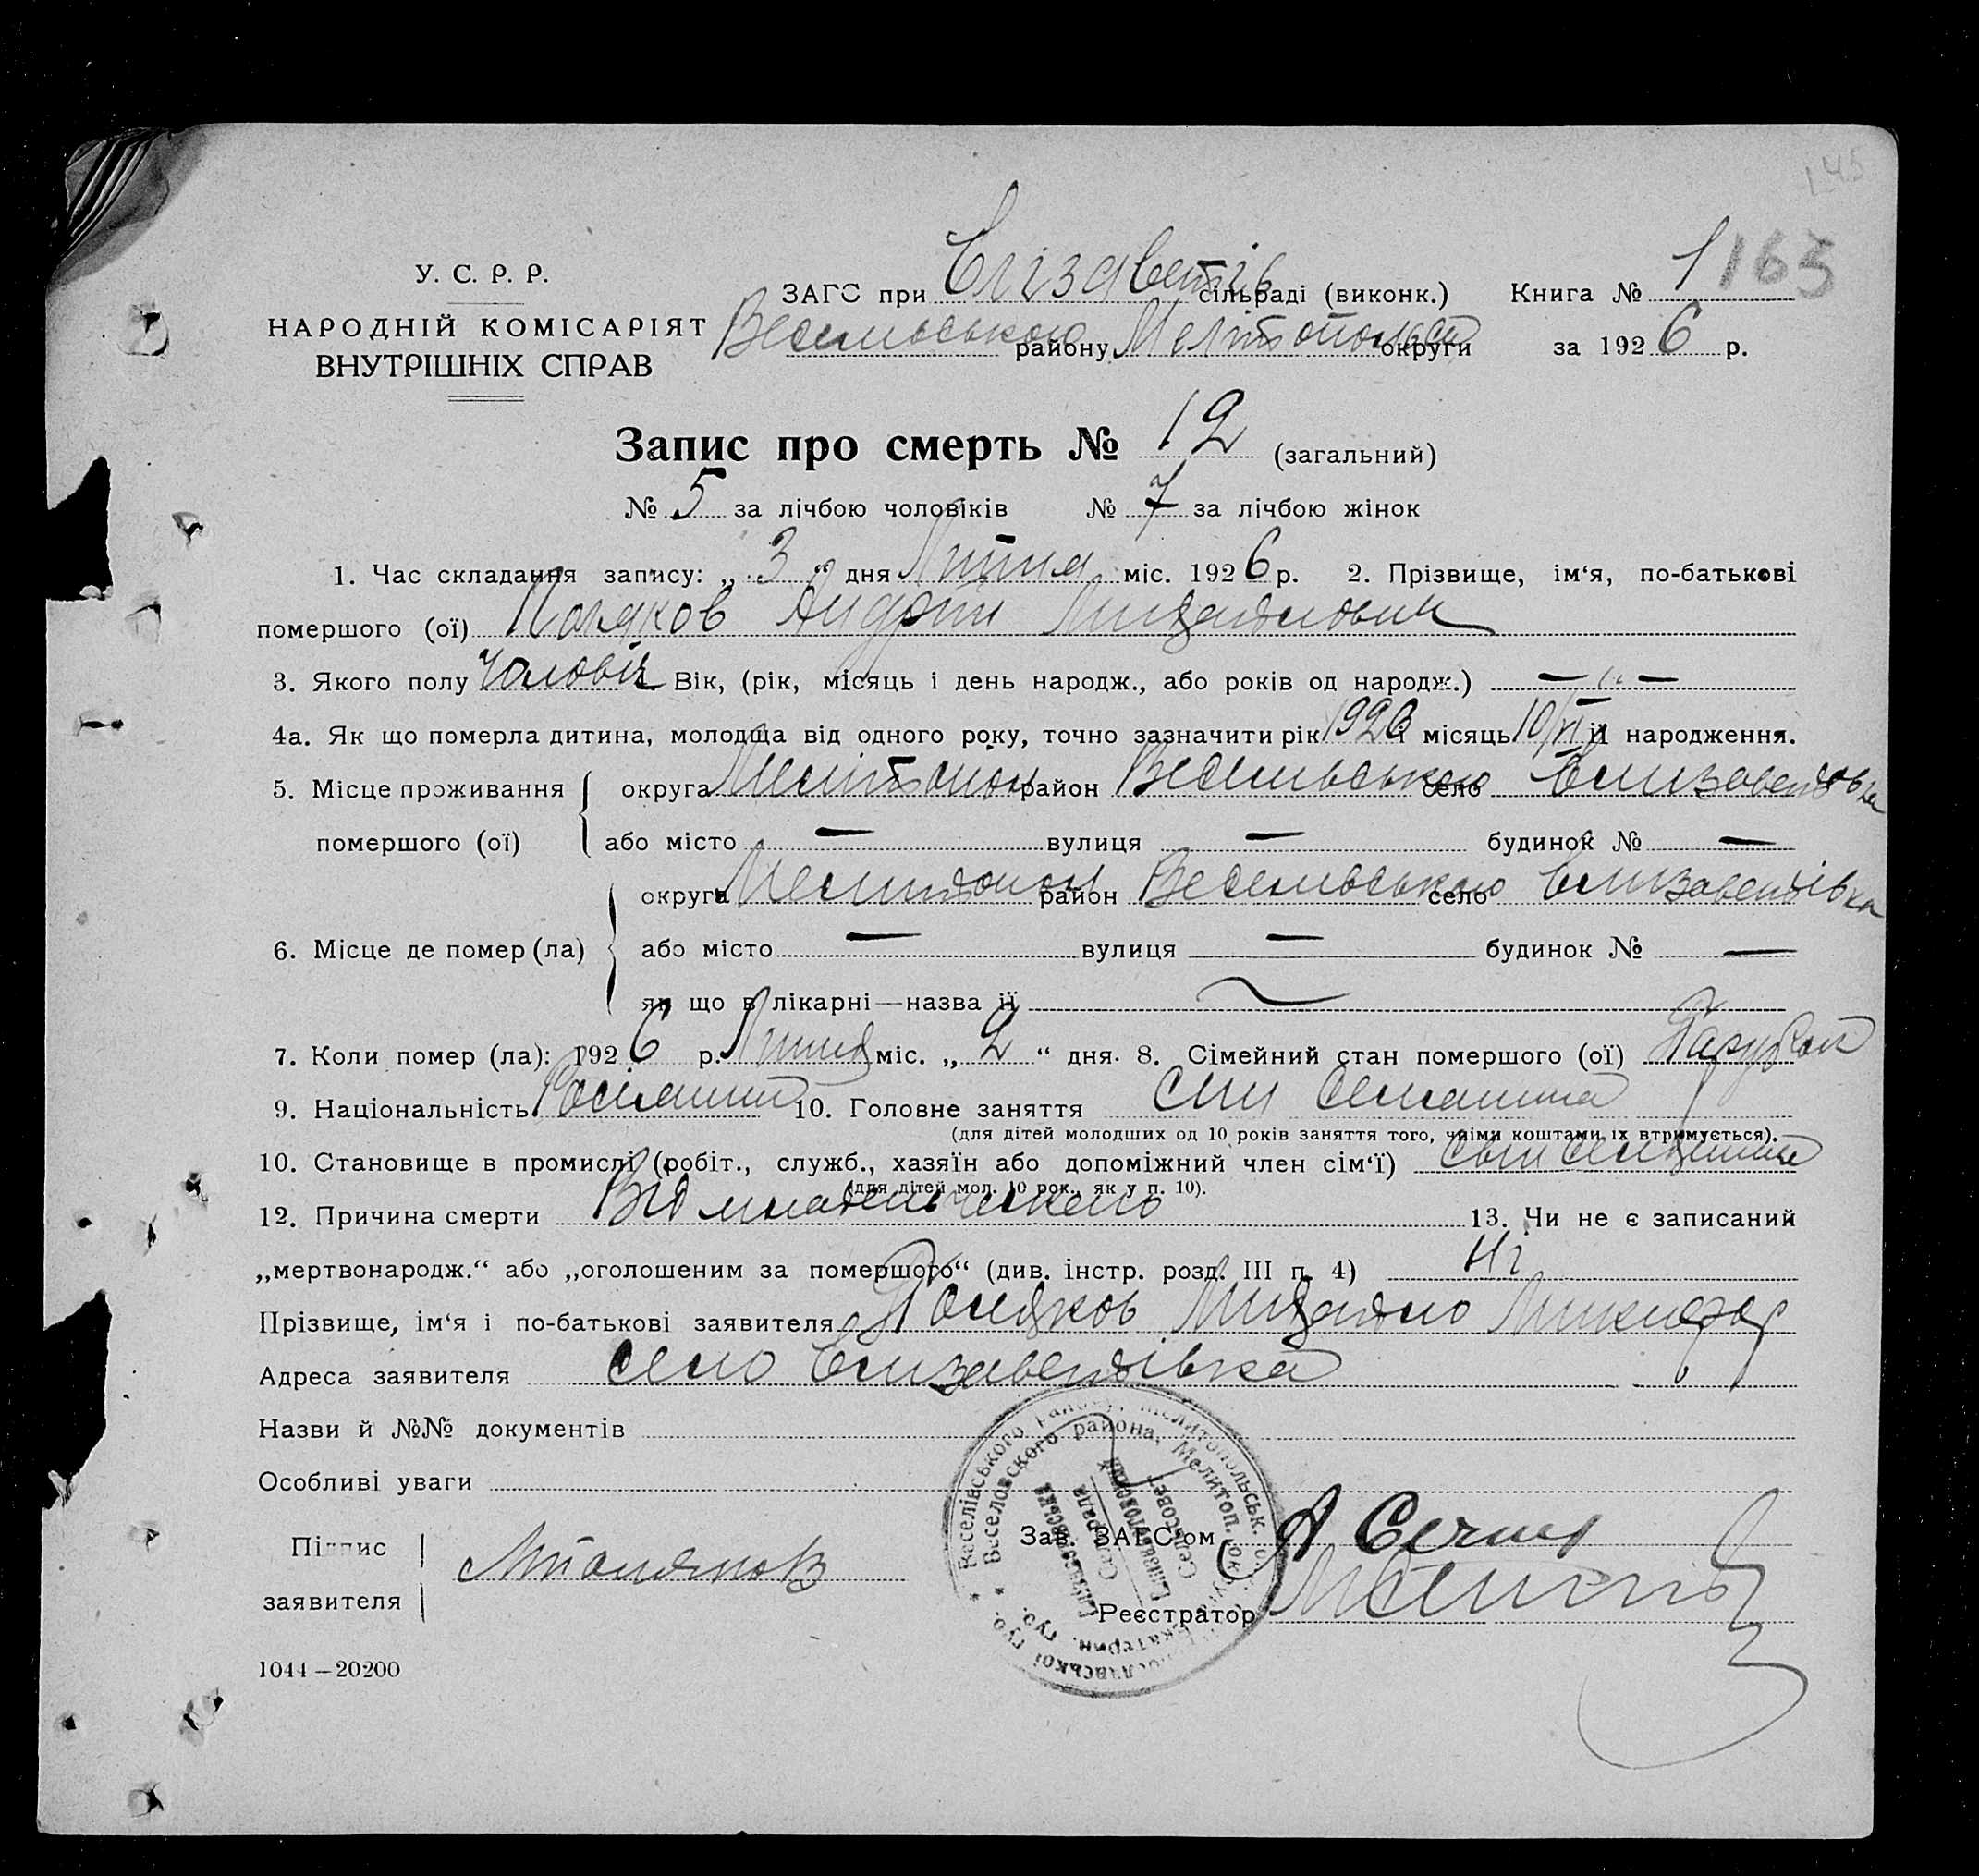 145
У. С. Р. Р.
НАРОДНІЙ КОМІСАРІЯТ
ВНУТРІШНІХ СПРАВ
ЗАГС при Єлізаветів сільраді (виконк.) Книга № 1 165
Веселівського району Мелітопольсь округи за 1926 р.
Запис про смерть № 12 (загальний)
№ 5 за лічбою чоловіків № 7 за лічбою жінок
1. Час складання запису: „3“ дня Липня міс. 1926 р. 2. Прізвище, ім‘я, по-батькові
помершого (ої) Поляков Андрій Михайлович
3. Якого полу Чоловік Вік, (рік, місяць і день народж., або років од народж.) — „ —
4а. Як що померла дитина, молодща від одного року, точно зазначити рік 1926 і місяць 10/VI її народження.
5. Місце проживання округа Мелітополь район Веселівського село Єлизаветовка
помершого (ої) або місто — вулиця — будинок № —
округа Мелитополь район Веселивського село Єлизаветівка
6. Місце де помер (ла) або місто — вулиця — будинок № —
як що в лікарні—назва її
7. Коли помер (ла): 1926 р. Липня міс. „2“ дня. 8. Сімейний стан помершого (ої) Парубок
9. Національність Росіянин 10. Головне заняття син селянина
(для дітей молодших од 10 років заняття того, чиїми коштами їх втримується).
10. Становище в промислі (робіт., служб., хазяїн або допоміжний член сім‘ї) син селянина
(для дітей мол. 10 рок., як у п. 10).
12. Причина смерти Від младенческого 13. Чи не є записаний
„мертвонародж.“ або „оголошеним за помершого“ (див. інстр. розд. III п. 4) Ні
Прізвище, ім‘я і по-батькові заявителя Поляков Михайло
Адреса заявителя село Єлизаветівка
Назви й №№ документів
Особливі уваги
Веселівського району, Мелитопольськ.
Веселовского района, Мелитоп. окр.
Сельрада
Сельсовет
Катерин. губ.
Підпис
заявителя
Зав. ЗАГС‘ом
Реєстратор
1044 – 20200